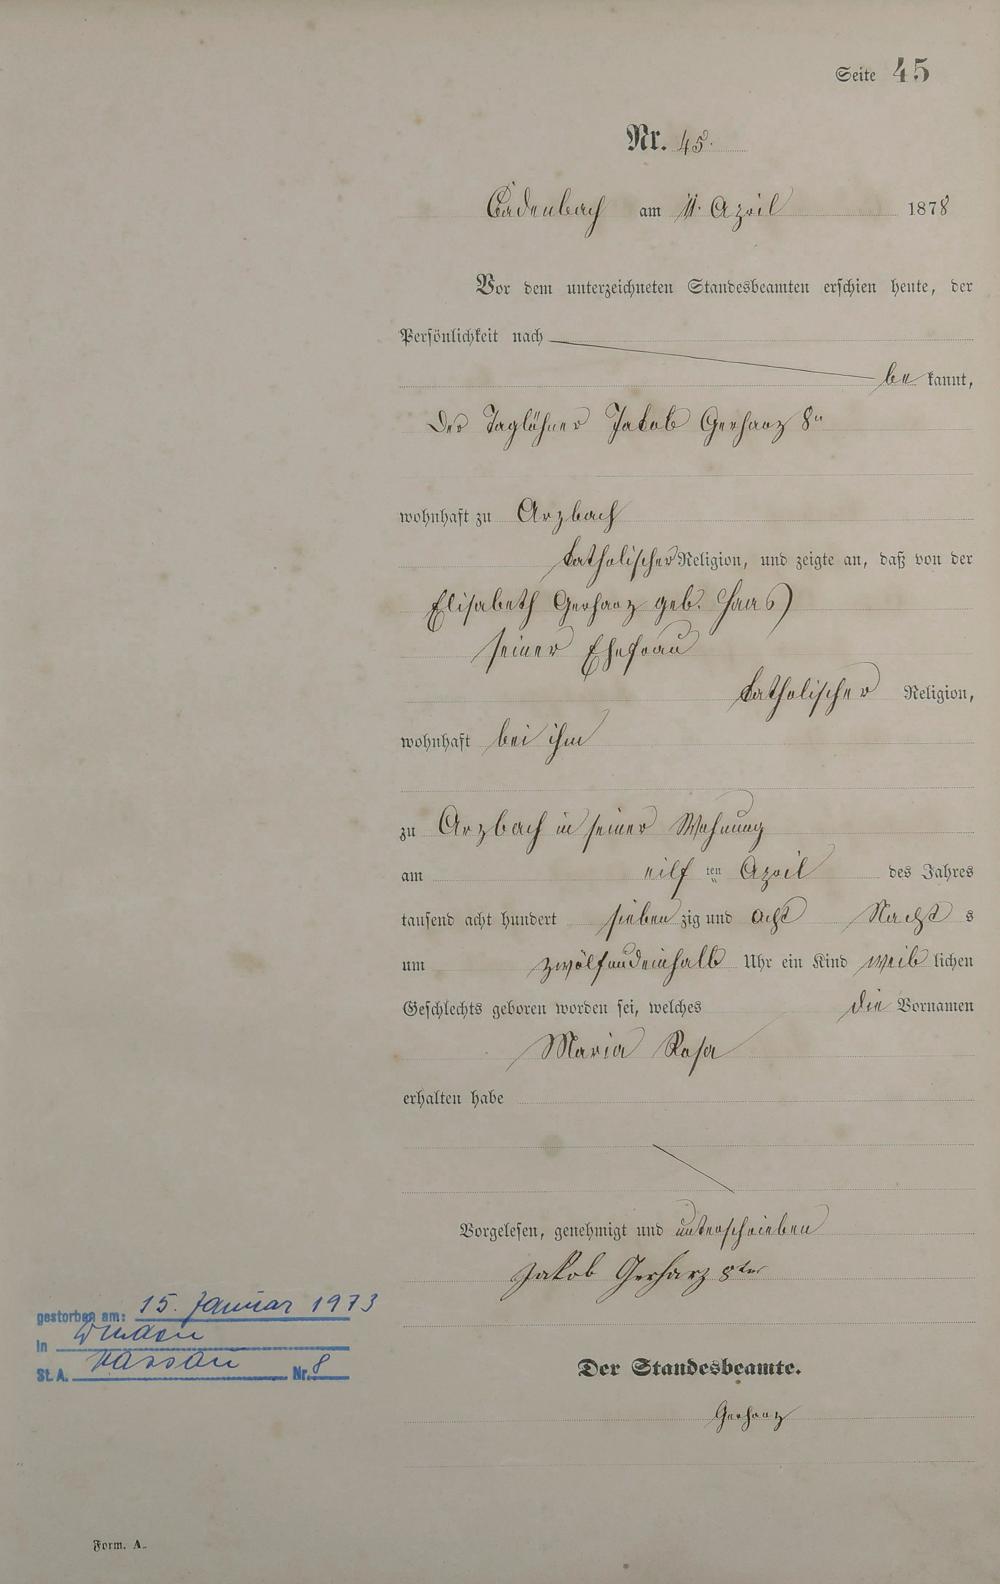 Seite 45
Nr. 45.
Cadenbach am 11. April 1878
Vor dem unterzeichneten Standesbeamten erschien heute, der
Persönlichkeit nach
be kannt,
der Taglöhner Jakob Gerharz 8r
wohnhaft zu Arzbach
katholischer Religion, und zeigte an, daß von der
Elisabeth Gerharz geb. Haas
seiner Ehefrau
katholischer Religion,
wohnhaft bei ihm
zu Arzbach in seiner Wohnung
am eilf ten April des Jahres
tausend acht hundert sieben zig und acht Nacht s
um zwölfundeinhalb Uhr ein Kind weib lichen
Geschlechts geboren worden sei, welches die Vornamen
Maria Rosa
erhalten habe
Vorgelesen, genehmigt und unterschrieben
Jakob Gerharz 8ter
gestorben am: 15. Januar 1973
in Winden
St. A. Nassau Nr. 8
Der Standesbeamte.
Gerharz
Form. A.